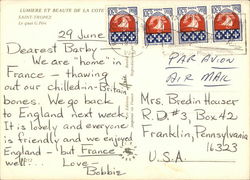 LUMIERE ET BEAUTE DE LA COTE
SAINT-TROPEZ
Le quai G. Péri
29 June
Dearest Barby—
We are "home" in
France — thawing
out our chilled-in-Britain
bones. We go back
to England next week.
It is lovely and everyone
is friendly and we enjoyed
England — but France
well...
Love—
Bobbie
PAR AVION
AIR MAIL
Mrs. Bredin Houser
R.D. #3, Box 42
Franklin, Pennsylvania
16323
U.S.A.